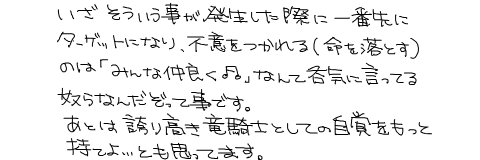 いざ そういう事が発生した際に一番先に
ターゲットになり、不意をつかれる(命を落とす)
のは「みんな仲良く♫」なんて呑気に言ってる
奴らなんだぞって事です。
あとは誇り高き竜騎士としての自覚をもっと
持てよ…とも思ってます。